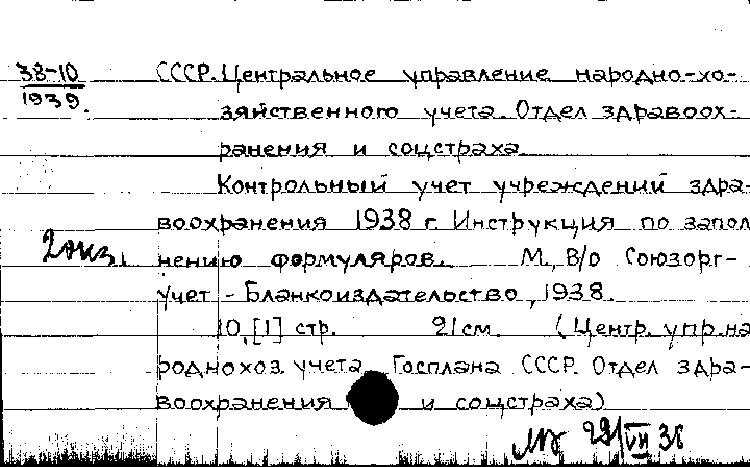 38-10
1939.
СССР. Центральное управление народно-хо-
зяйственного учета. Отдел здравоох-
ранения и соцстраха
Контрольный учет учреждений здра-
воохранения 1938 г. Инструкция по запол
2 экз.
нению формуляров. М., В/о Союзорг-
учет - Бланкоиздательство, 1938.
10, [1] стр. 21 см. (Центр. упр. на
роднохоз. учета Госплана СССР. Отдел здра-
воохранения и соцстраха)
29/VII 38